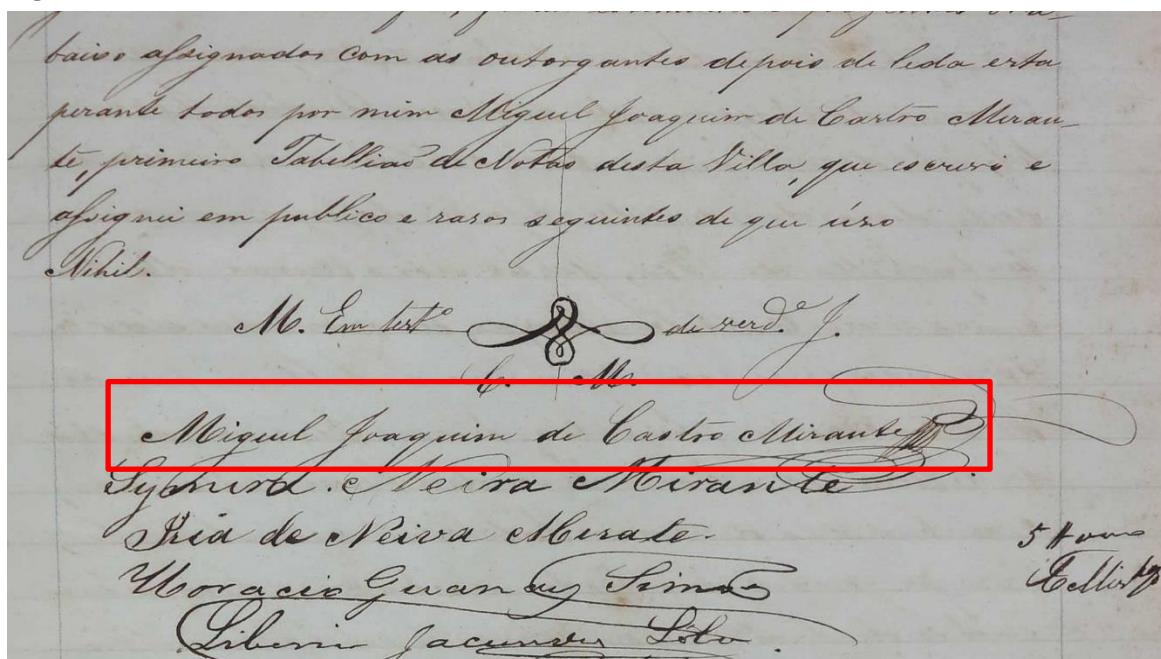 baixo assignados com as outorgantes depois de leda esta
perante todos por mim Miguel Joaquim de Castro Miran-
te, primeiro Tabellião de Notas desta Villa, que escrevi e
assignei em publico e rasos seguintes de que úzo
Nihil.
M. Em testº de verd.e J.
C. M.
Miguel Joaquim de Castro Mirante
Neiva Mirante
de Neiva Mirate.
Horacio Simões
Liberio Lobo
5